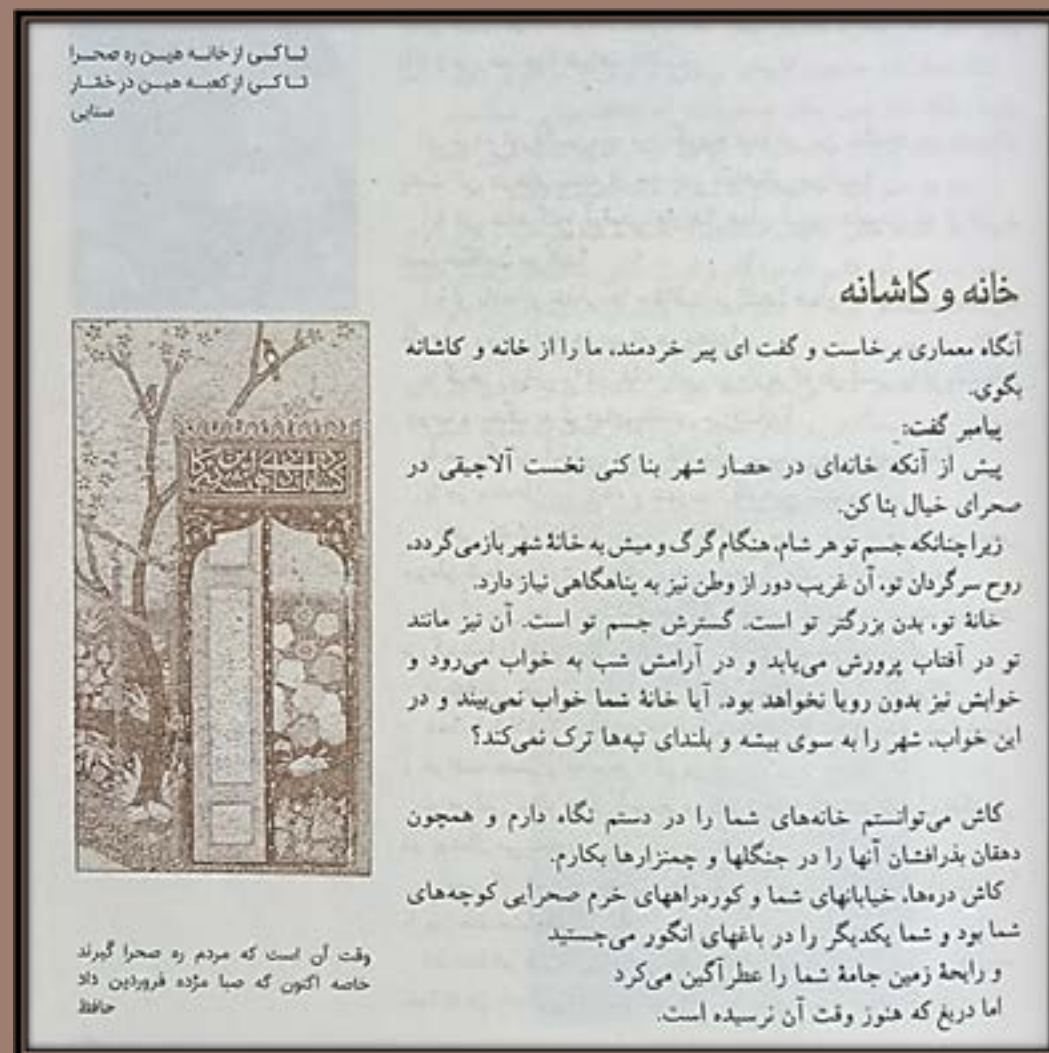 تا کی از خانه هین ره صحرا
تا کی از کعبه هین در خمار
سنایی
خانه و کاشانه
آنگاه معماری برخاست و گفت ای پیر خردمند، ما را از خانه و کاشانه
بگوی.
پیامبر گفت:
پیش از آنکه خانه‌ای در حصار شهر بنا کنی نخست آلاچیقی در
صحرای خیال بنا کن.
زیرا چنانکه جسم تو هر شام، هنگام گرگ و میش به خانهٔ شهر بازمی‌گردد،
روح سرگردان تو، آن غریب دور از وطن نیز به پناهگاهی نیاز دارد.
خانهٔ تو، بدن بزرگتر تو است. گسترش جسم تو است. آن نیز مانند
تو در آفتاب پرورش می‌یابد و در آرامش شب به خواب می‌رود و
خوابش نیز بدون رویا نخواهد بود. آیا خانهٔ شما خواب نمی‌بیند و در
این خواب، شهر را به سوی بیشه و بلندای تپه‌ها ترک نمی‌کند؟
کاش می‌توانستم خانه‌های شما را در دستم نگاه دارم و همچون
دهقان بذرافشان آنها را در جنگلها و چمنزارها بکارم.
کاش دره‌ها، خیابانهای شما و کوره‌راههای خرم صحرایی کوچه‌های
شما بود و شما یکدیگر را در باغهای انگور می‌جستید
و رایحهٔ زمین جامهٔ شما را عطرآگین می‌کرد
اما دریغ که هنوز وقت آن نرسیده است.
وقت آن است که مردم ره صحرا گیرند
خاصه اکنون که صبا مژده فروردین داد
حافظ